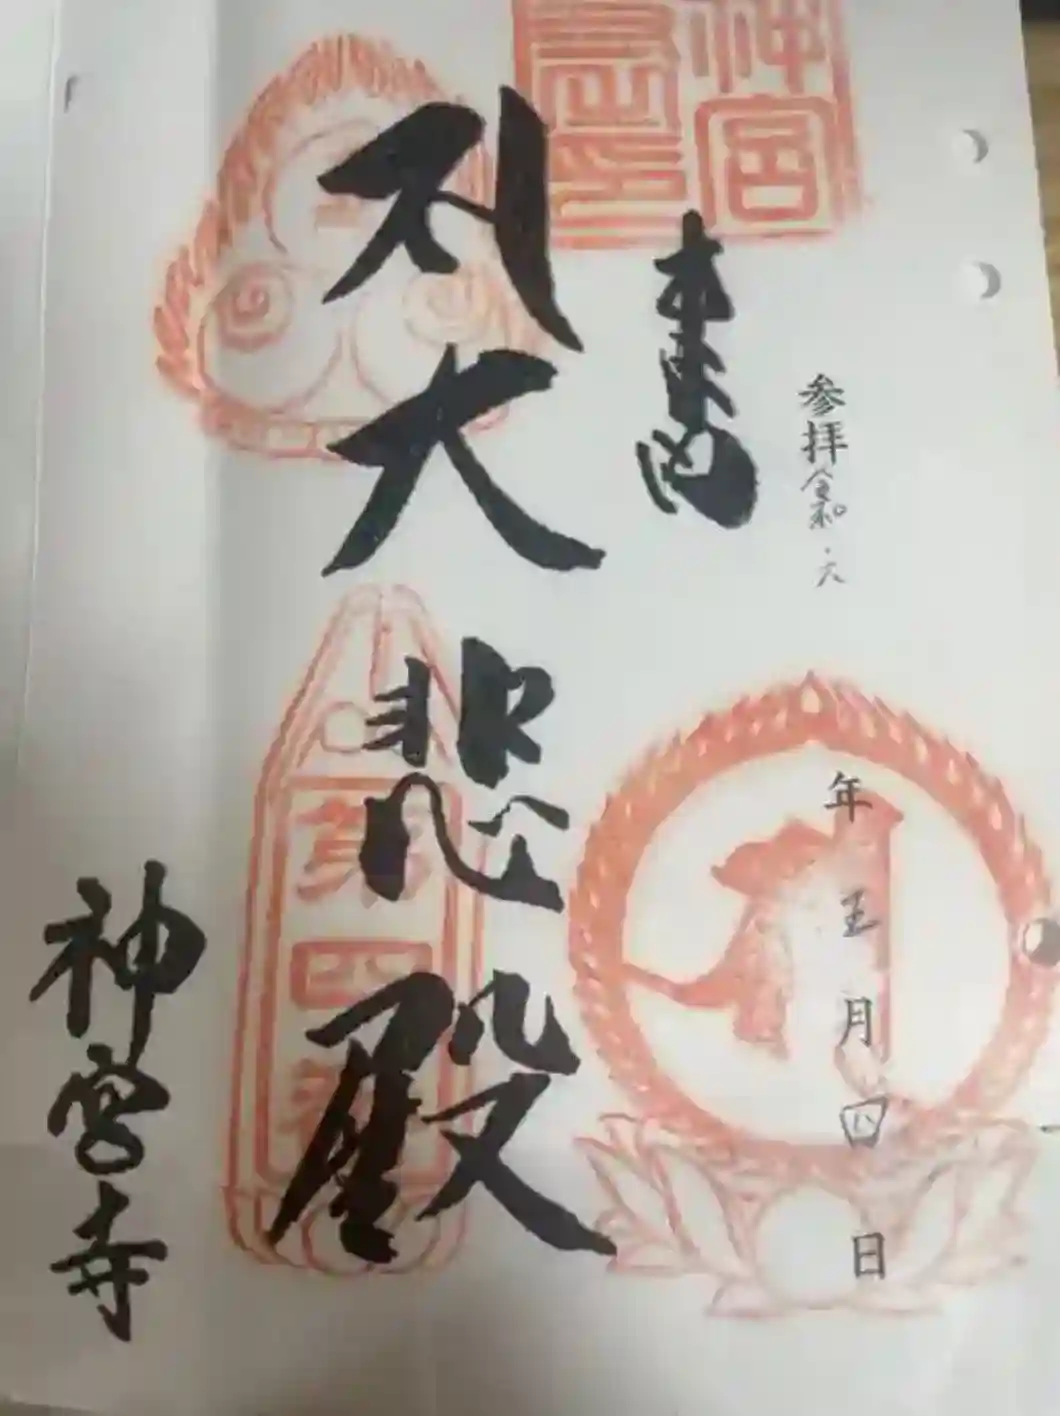 神宮寺印
参拝令和六年五月四日
大悲殿
第四番
神宮寺